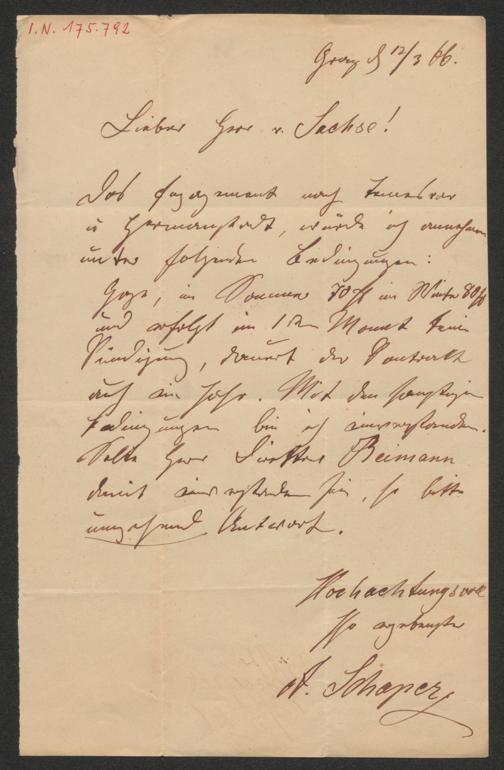 I.N. 175.792
Graz d 12/3 66.
Lieber Herr v. Sachse!
Das Engagement nach Temesvar
u Hermannstadt, würde ich annehmen
unter folgenden Bedingungen:
Gage, im Sommer 70 fl im Winter 80 fl
und erfolgt im 1ten Monat keine
Kündigung, dauert der Contrakt
auf ein Jahr. Mit den sonstigen
Bedingungen bin ich einverstanden.
Sollte Herr Direktor Reimann
damit einverstanden sein, so bitte
umgehend Antwort.
Hochachtungsvoll
Ihr ergebenster
A. Schaper